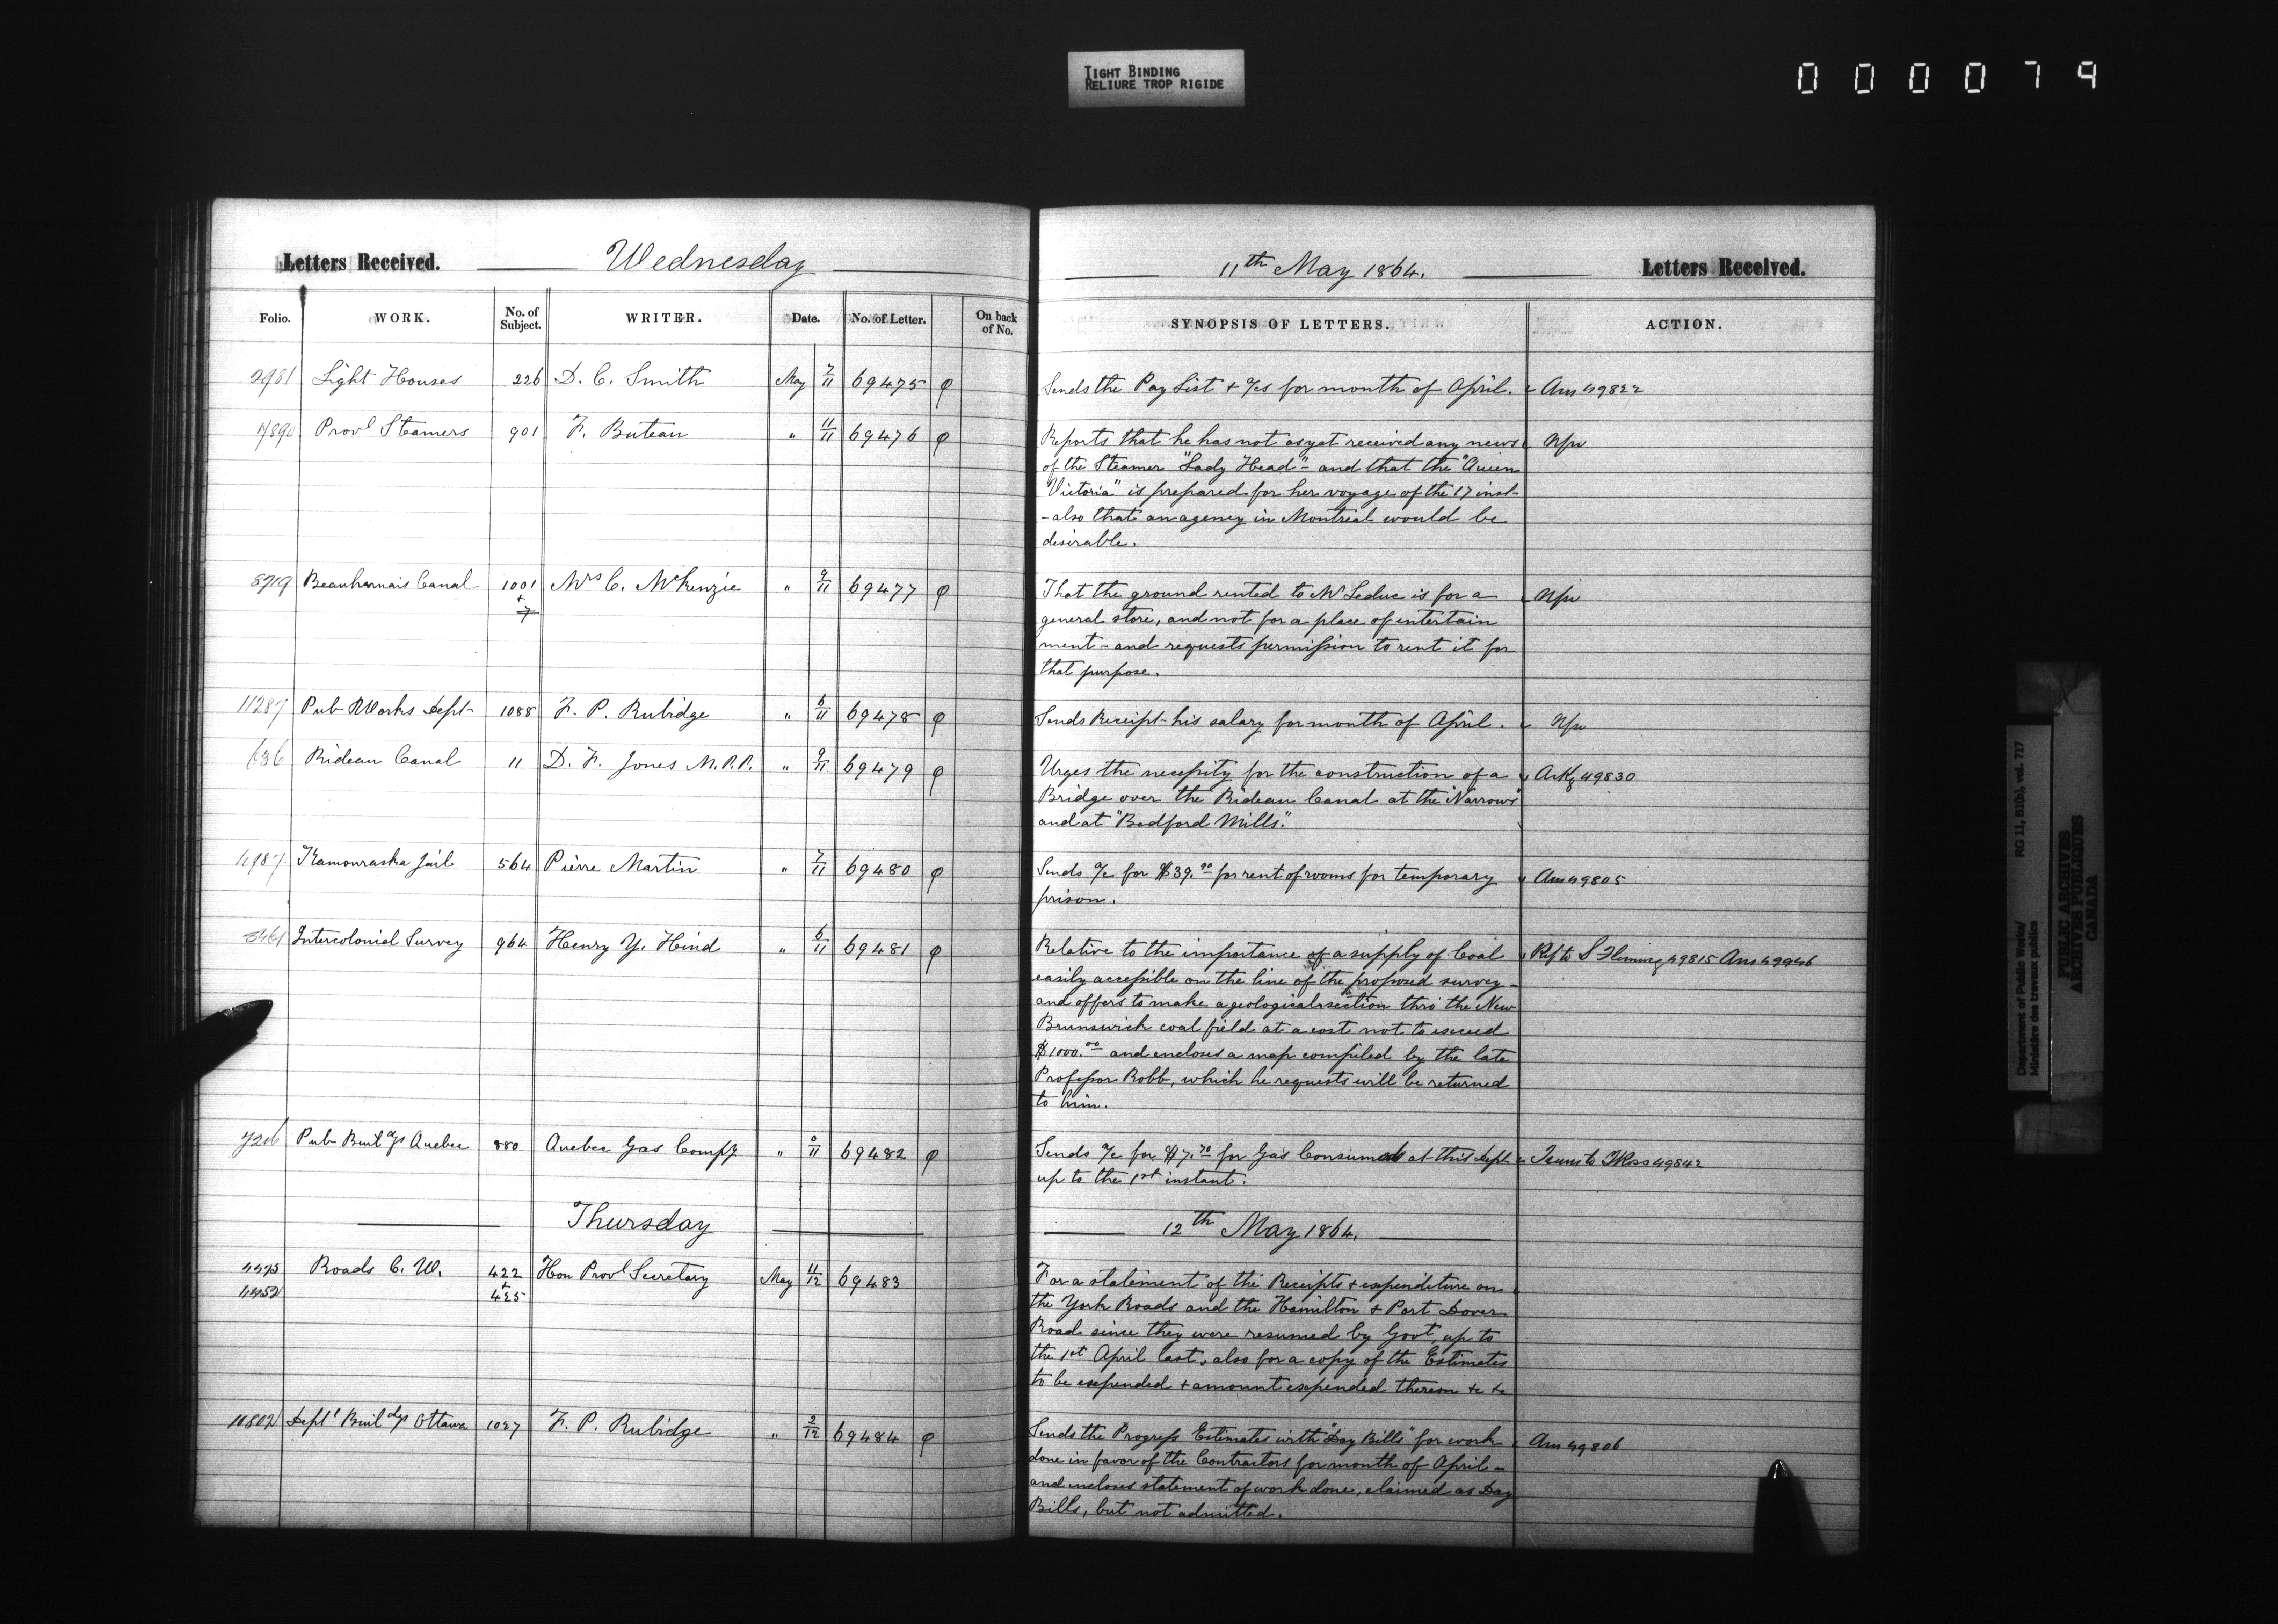 TIGHT BINDING
RELIURE TROP RIGIDE
000079
Letters Received. Wednesday
11th May 1864. Letters Received.
Folio. WORK. No. of Subject. WRITER. Date. No. of Letter. On back of No. SYNOPSIS OF LETTERS. ACTION.
2981 Light Houses 226 D. C. Smith May 7/11 69475 Sends the Pay List + a/cs for month of April. Ans 49822
Provl Steamers 901 F. Buteau " 11/11 69476 Reports that he has not as yet received any news
of the Steamer "Lady Head" - and that the "Queen
Victoria" is prepared for her voyage of the 17 inst-
- also that an agency in Montreal would be
desirable.
8719 Beauharnais Canal 1001 + 7 Mrs C. McKenzie " 9/11 69477 That the ground rented to Mr Leduc is for a
general store, and not for a place of entertain
ment - and requests permission to rent it for
that purpose.
11287 Pub Works Dept 1088 F. P. Rubidge " 6/11 69478 Sends Receipt his salary for month of April.
636 Rideau Canal 11 D. F. Jones M.P.P. " 9/11 69479 Urges the necessity for the construction of a Ackg 49830
Bridge over the Rideau Canal at the "Narrows"
and at "Bedford Mills."
Kamouraska Jail 564 Pierre Martin " 7/11 69480 Sends a/c for $39.00 for rent of rooms for temporary Ans 49805
prison.
Intercolonial Survey 964 Henry Y. Hind " 6/11 69481 Relative to the importance of a supply of Coal Ref to S Fleming 49815 Ans 49946
easily accessible on the line of the proposed survey -
and offers to make a geological section thro the New
Brunswick coal field at a cost not to exceed
$1000.00 and encloses a map compiled by the late
Professor Robb, which he requests will be returned
to him.
7206 Pub Buildgs Quebec 880 Quebec Gas Compy " 0/11 69482 Sends a/c for $7.70 for Gas Consumed at this Dept Trans to T Ross 49842
up to the 1st instant.
Thursday 12th May 1864.
Roads C. W. 422 + 425 Hon Provl Secretary May 11/12 69483 For a statement of the Receipts + expenditure on
the York Roads and the Hamilton + Port Dover
Road since they were resumed by Govt, up to
the 1st April last, also for a copy of the Estimates
to be expended + amount expended thereon &c &c
Deptl Buildgs Ottawa 1027 F. P. Rubidge " 2/12 69484 Sends the Progress Estimates with "Day Bills" for work Ans 49806
done in favor of the Contractors for month of April -
and encloses statement of work done, claimed as Day
Bills, but not admitted.
Department of Public Works/ RG 11, B1(b), vol. 717
Ministère des travaux publics
PUBLIC ARCHIVES
ARCHIVES PUBLIQUES
CANADA